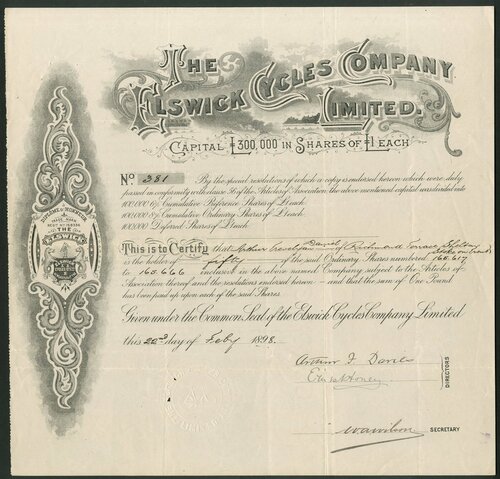 THE
ELSWICK CYCLES COMPANY
LIMITED.
CAPITAL £300,000 IN SHARES OF £1 EACH
No. 381 By the special resolutions of which a copy is endorsed hereon which were duly
passed in conformity with clause 56 of the Articles of Association the above mentioned capital was divided into
100,000 6% Cumulative Preference Shares of £1 each.
100,000 8% Cumulative Ordinary Shares of £1 each.
100,000 Deferred Shares of £1 each.
This is to Certify that Davis of Richmond Terrace
is the holder of fifty of the said Ordinary Shares numbered 160.617
to 160.666 inclusive in the above named Company subject to the Articles of
Association thereof and the resolutions endorsed hereon — and that the sum of One Pound
has been paid up upon each of the said Shares.
Given under the Common Seal of the Elswick Cycles Company Limited
this 22nd day of Feby 1898.
Arthur J. Davies
DIRECTORS
SECRETARY
TRADE MARK
THE
ELSWICK